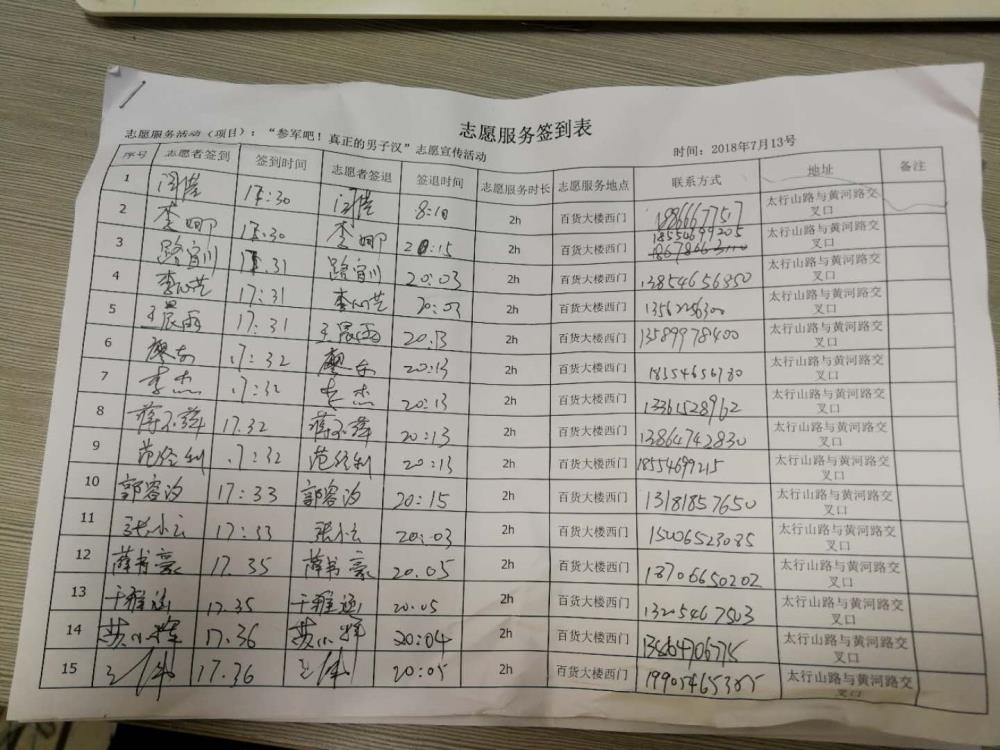 志愿服务签到表
志愿服务活动（项目）：“参军吧！真正的男子汉”志愿宣传活动 时间：2018年7月13号
序号 志愿者签到 签到时间 志愿者签退 签退时间 志愿服务时长 志愿服务地点 联系方式 地址 备注
1 17:30 8:10 2h 百货大楼西门 太行山路与黄河路交
叉口
2 李娜 17:30 李娜 20:15 2h 百货大楼西门 18554699205 太行山路与黄河路交
叉口
3 17:31 20:03 2h 百货大楼西门 13854656850 太行山路与黄河路交
叉口
4 李心芷 17:31 李心芷 20:03 2h 百货大楼西门 太行山路与黄河路交
叉口
5 王晨雨 17:31 王晨雨 20.13 2h 百货大楼西门 13589978400 太行山路与黄河路交
叉口
6 17:32 20:13 2h 百货大楼西门 18554656780 太行山路与黄河路交
叉口
7 李杰 17:32 李杰 20:13 2h 百货大楼西门 13361528962 太行山路与黄河路交
叉口
8 17.32 20:13 2h 百货大楼西门 13864742830 太行山路与黄河路交
叉口
9 17:32 20:13 2h 百货大楼西门 18554699215 太行山路与黄河路交
叉口
10 郭容汐 17:33 郭容汐 20:15 2h 百货大楼西门 13181857650 太行山路与黄河路交
叉口
11 张小云 17:33 张小云 20:03 2h 百货大楼西门 15006523085 太行山路与黄河路交
叉口
12 薛书豪 17.35 薛书豪 20.05 2h 百货大楼西门 18706650202 太行山路与黄河路交
叉口
13 于雅涵 17.35 于雅涵 20.05 2h 百货大楼西门 13205467503 太行山路与黄河路交
叉口
14 17.36 20:04 2h 百货大楼西门 太行山路与黄河路交
叉口
15 17.36 20:05 2h 百货大楼西门 19905465385 太行山路与黄河路交
叉口